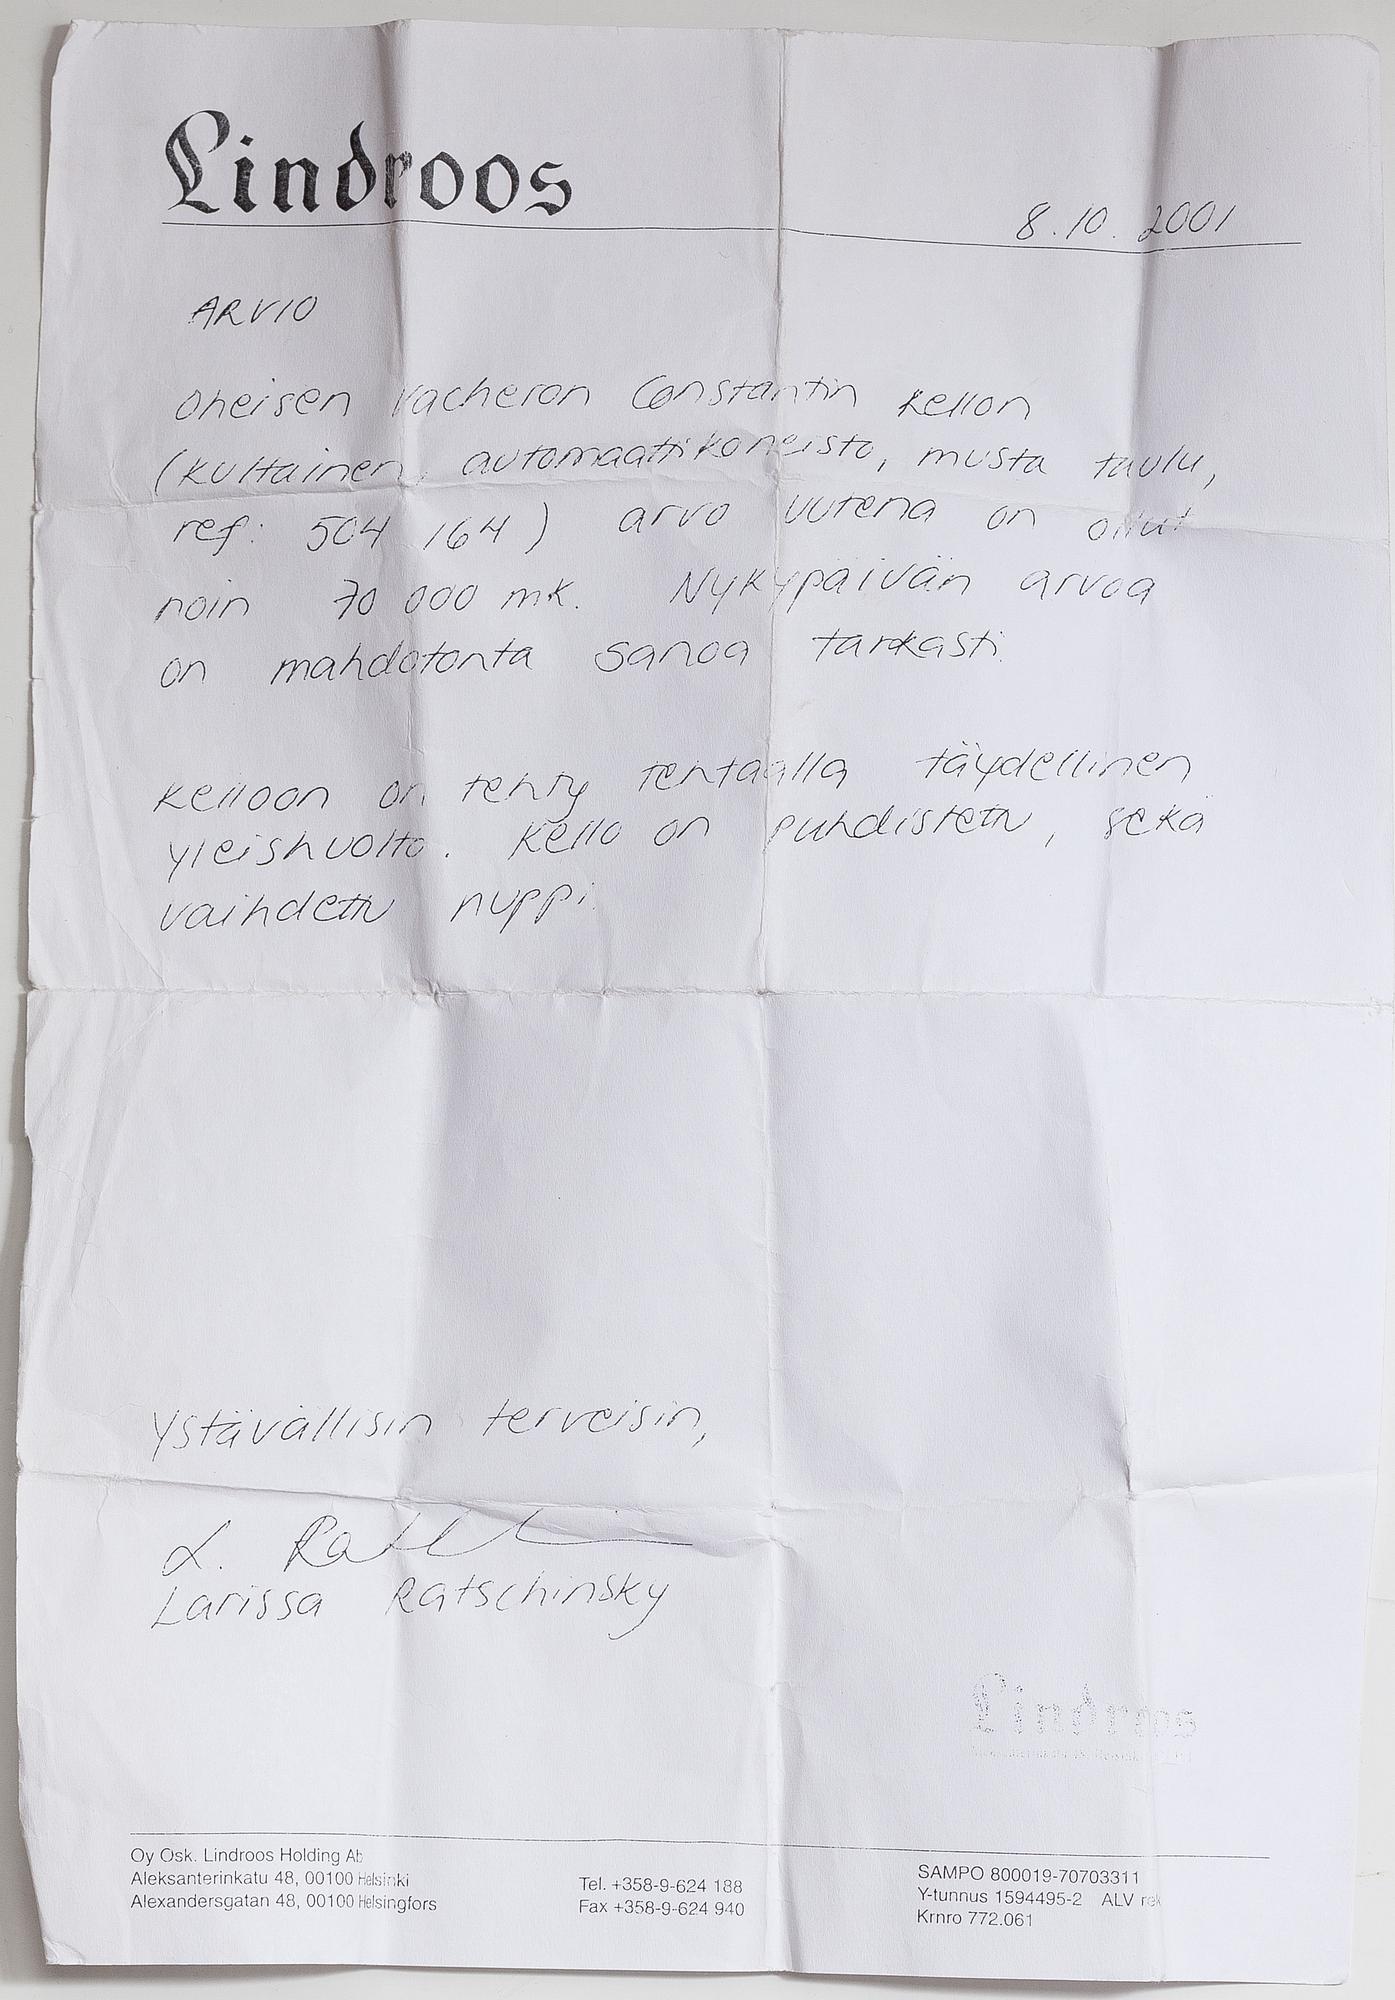 Lindroos
8.10. 2001
ARVIO
Oheisen Vacheron Constantin kellon
(kultainen, automaattikoneisto, musta taulu,
ref: 504 164) arvo uutena on ollut
noin 70 000 mk. Nykypäivän arvoa
on mahdotonta sanoa tarkasti.
Kelloon on tehty tehtaalla täydellinen
yleishuolto. Kello on puhdistettu, sekä
vaihdettu nuppi.
Ystävällisin terveisin,
L.
Larissa Ratschinsky
Lindroos
Oy Osk. Lindroos Holding Ab
Aleksanterinkatu 48, 00100 Helsinki
Alexandersgatan 48, 00100 Helsingfors
Tel. +358-9-624 188
Fax +358-9-624 940
SAMPO 800019-70703311
Y-tunnus 1594495-2 ALV rek
Krnro 772.061